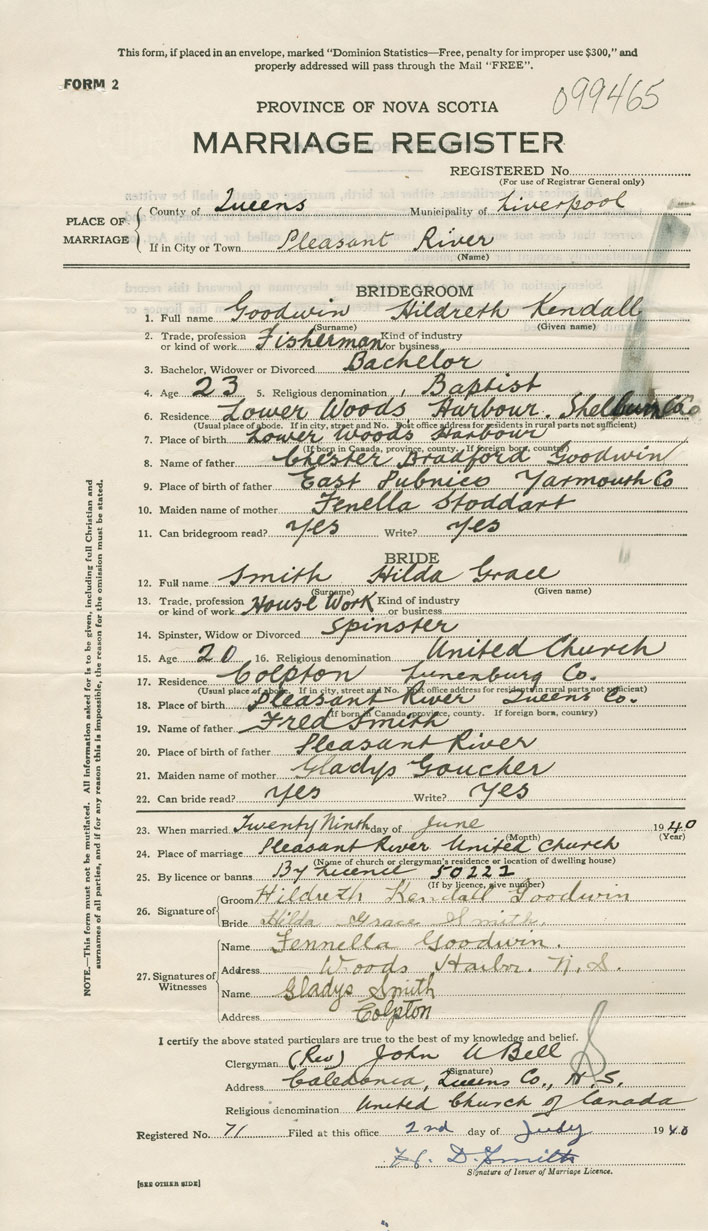 This form, if placed in an envelope, marked "Dominion Statistics—Free, penalty for improper use $300," and
properly addressed will pass through the Mail "FREE".
FORM 2
099465
PROVINCE OF NOVA SCOTIA
MARRIAGE REGISTER
REGISTERED No.
(For use of Registrar General only)
PLACE OF MARRIAGE
County of Queens Municipality of Liverpool
If in City or Town Pleasant River
(Name)
BRIDEGROOM
1. Full name Goodwin Hildreth Kendall
(Surname) (Given name)
2. Trade, profession or kind of work Fisherman Kind of industry or business
3. Bachelor, Widower or Divorced Bachelor
4. Age 23 5. Religious denomination Baptist
6. Residence Lower Woods Harbour. Shelburne Co
(Usual place of abode. If in city, street and No. Post office address for residents in rural parts not sufficient)
7. Place of birth Lower Woods Harbour
(If born in Canada, province, county. If foreign born, country)
8. Name of father Chester Bradford Goodwin
9. Place of birth of father East Pubnico Yarmouth Co
10. Maiden name of mother Fenella Stoddart
11. Can bridegroom read? Yes Write? Yes
BRIDE
12. Full name Smith Hilda Grace
(Surname) (Given name)
13. Trade, profession or kind of work House Work Kind of industry or business
14. Spinster, Widow or Divorced Spinster
15. Age 20 16. Religious denomination United Church
17. Residence Colpton Lunenburg Co.
(Usual place of abode. If in city, street and No. Post office address for residents in rural parts not sufficient)
18. Place of birth Pleasant River Queens Co.
(If born in Canada, province, county. If foreign born, country)
19. Name of father Fred Smith
20. Place of birth of father Pleasant River
21. Maiden name of mother Gladys Goucher
22. Can bride read? Yes Write? Yes
23. When married Twenty Ninth day of June 1940
(Month) (Year)
24. Place of marriage Pleasant River United Church
(Name of church or clergyman's residence or location of dwelling house)
25. By licence or banns By Licence 50221
(If by licence, give number)
26. Signature of
Groom Hildreth Kendall Goodwin
Bride Hilda Grace Smith.
27. Signatures of Witnesses
Name Fennella Goodwin.
Address Woods Harbor. N.S.
Name Gladys Smith
Address Colpton
I certify the above stated particulars are true to the best of my knowledge and belief.
Clergyman (Rev) John A Bell
(Signature)
Address Caledonia, Queens Co., N.S.
Religious denomination United Church of Canada
Registered No. 71 Filed at this office 2nd day of July 1940
H. D. Smith
Signature of Issuer of Marriage Licence.
[SEE OTHER SIDE]
NOTE.—This form must not be mutilated. All information asked for is to be given, including full Christian and
surnames of all parties, and if for any reason this is impossible, the reason for the omission must be stated.